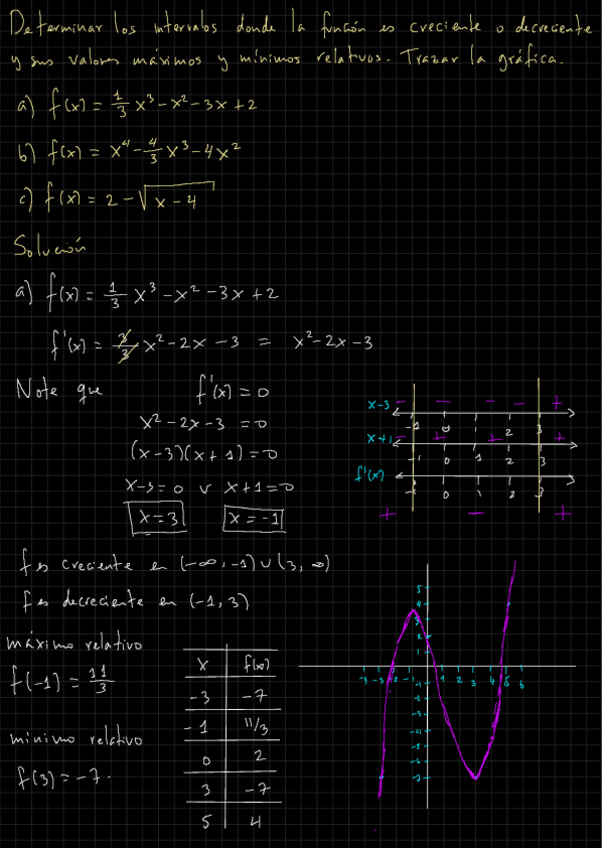 Determinar los intervalos donde la función es creciente o decreciente
y sus valores máximos y mínimos relativos. Trazar la gráfica.
a) f(x) = 1/3 x³ - x² - 3x + 2
b) f(x) = x⁴ - 4/3 x³ - 4x²
c) f(x) = 2 - √(x - 4)
Solución
a) f(x) = 1/3 x³ - x² - 3x + 2
f'(x) = 3/3 x² - 2x - 3 = x² - 2x - 3
Note que f'(x) = 0
x² - 2x - 3 = 0
(x-3)(x+1) = 0
x-3=0 v x+1=0
x=3 x=-1
x-3 - - - - +
-1 0 1 2 3
x+1 - + + +
-1 0 1 2 3
f'(x)
-1 0 1 2 3
+ - +
f es creciente en (-∞,-1)∪(3,∞)
f es decreciente en (-1,3)
máximo relativo
f(-1) = 11/3
mínimo relativo
f(3) = -7.
x f(x)
-3 -7
-1 11/3
0 2
3 -7
5 4